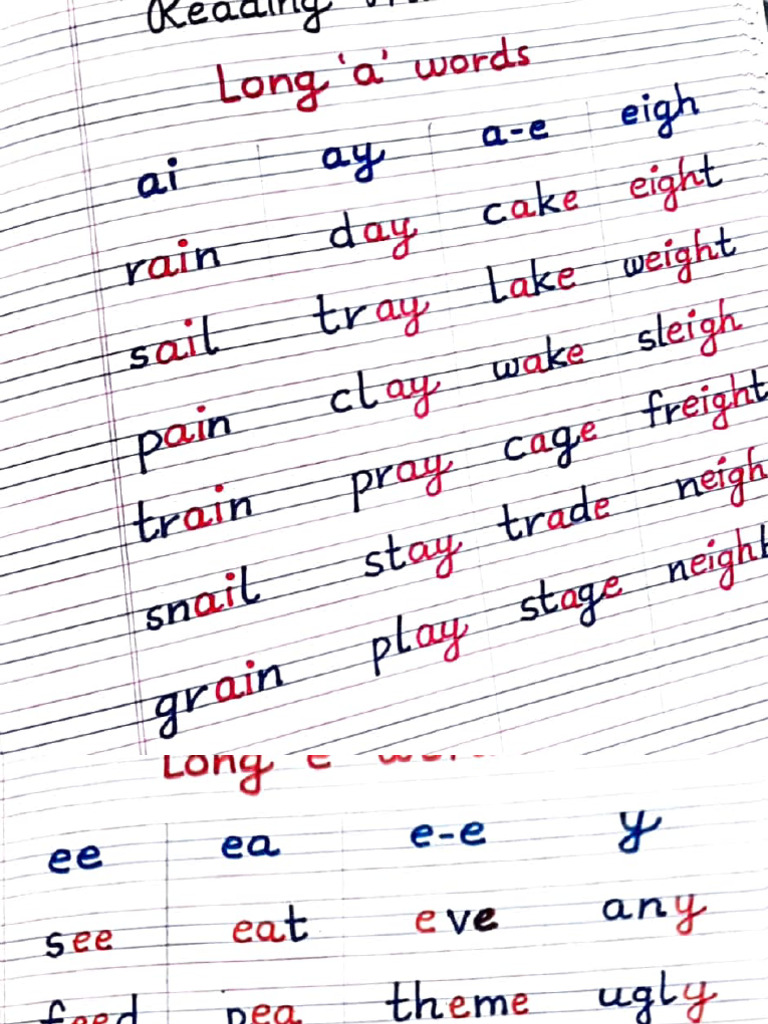 Reading
Long 'a' words
ai ay a-e eigh
rain day cake eight
sail tray lake weight
pain clay wake sleigh
train pray cage freight
snail stay trade neigh
grain play stage
Long e
ee ea e-e y
see eat eve any
feed pea theme ugly